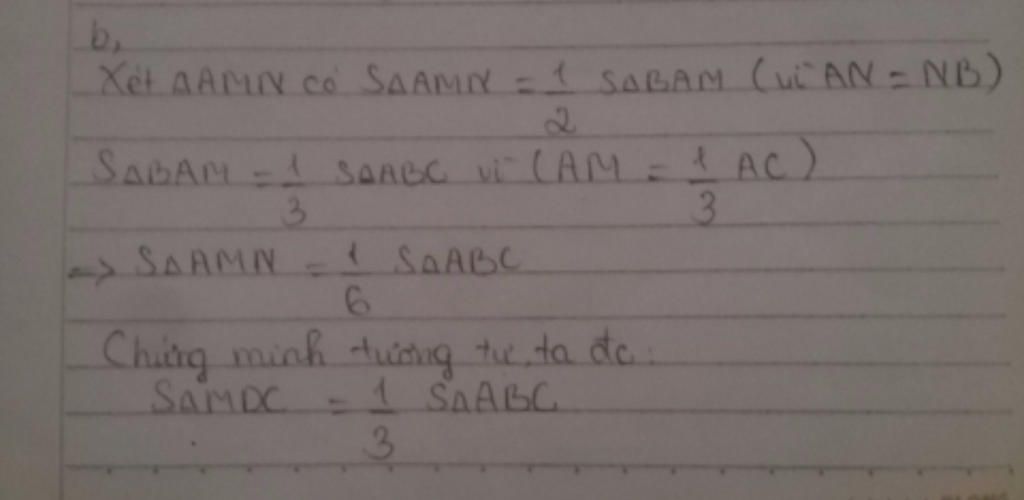 b,
Xét ΔAMN có SΔAMN = 1/2 SΔBAM (vì AN = NB)
SΔBAM = 1/3 SΔABC vì (AM = 1/3 AC)
=> SΔAMN = 1/6 SΔABC
Chứng minh tương tự, ta đc:
SΔMDC = 1/3 SΔABC